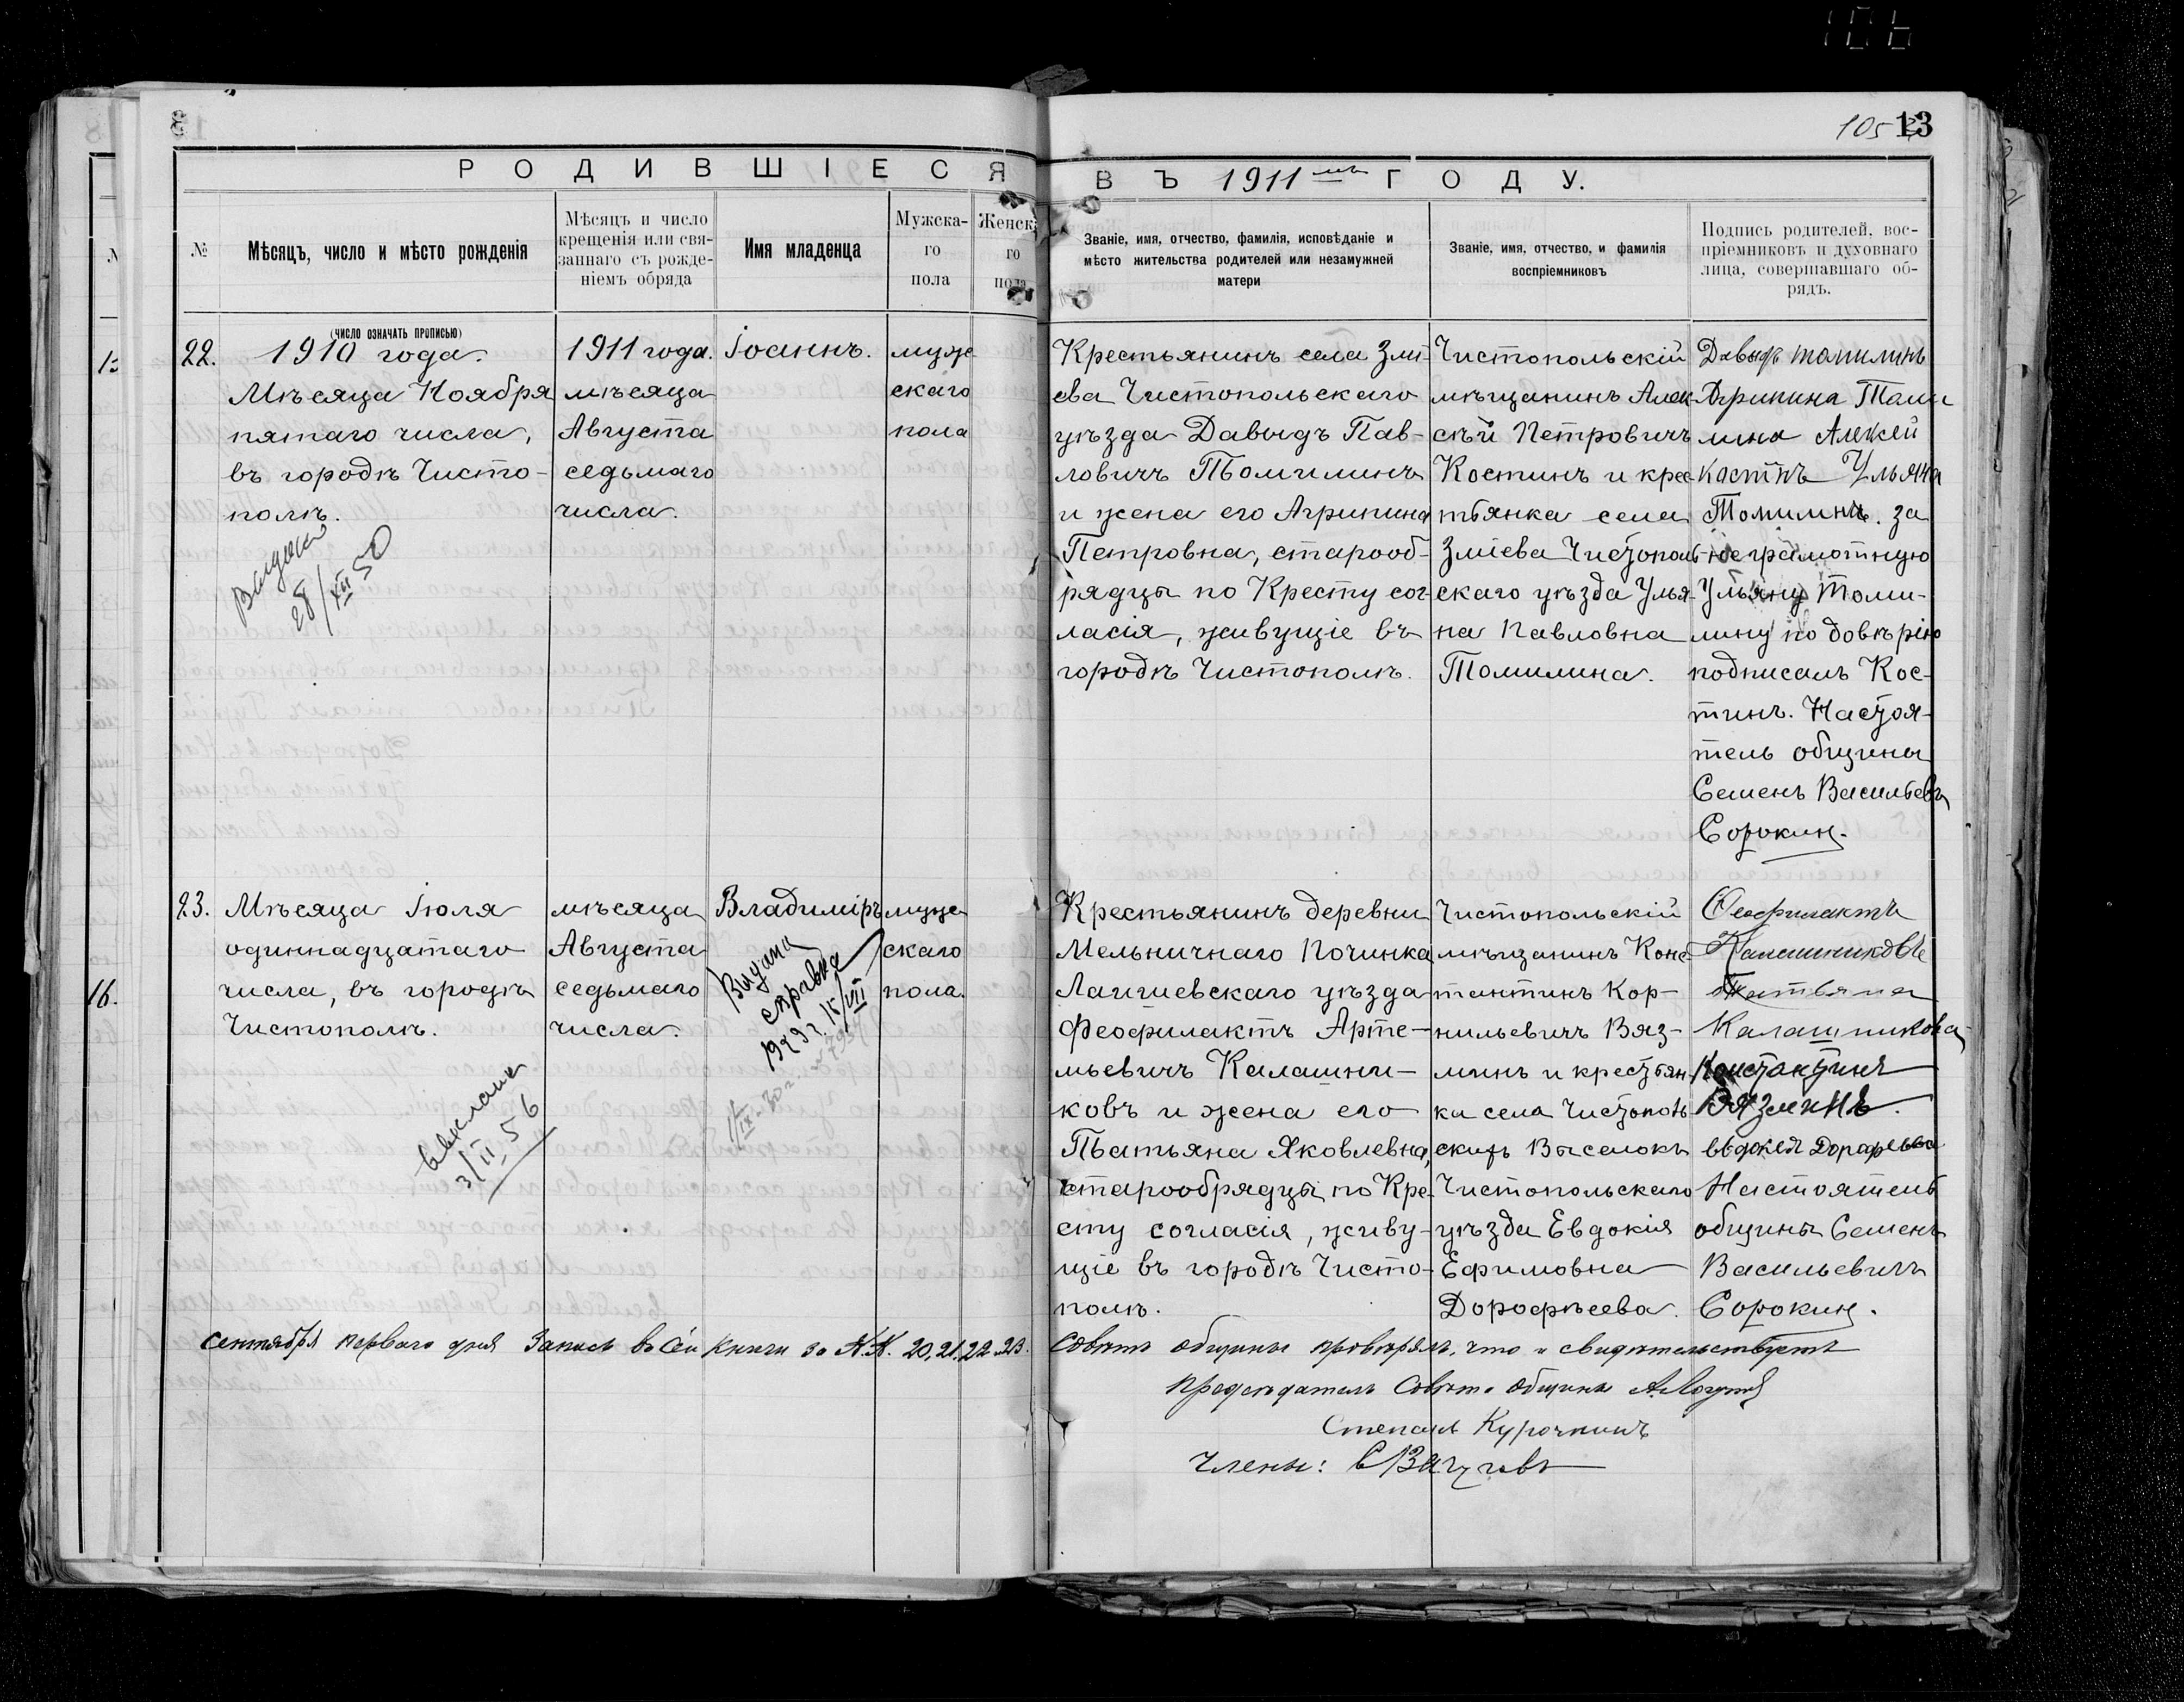 105 13
РОДИВШІЕСЯ ВЪ 1911мъ ГОДУ.
№
Мѣсяцъ, число и мѣсто рожденія
Мѣсяцъ и число
крещенія или свя-
заннаго съ рожде-
ніемъ обряда
Имя младенца
Мужска-
го
пола
Женска
го
пола
Званіе, имя, отчество, фамилія, исповѣданіе и
мѣсто жительства родителей или незамужней
матери
Званіе, имя, отчество, и фамилія
воспріемниковъ
Подпись родителей, вос-
пріемниковъ и духовнаго
лица, совершавшаго об-
рядъ.
(число означать прописью)
22.
1910 года.
Мѣсяца Ноября
пятаго числа,
въ городѣ Чисто-
полѣ.
28/XII 50
1911 года.
мѣсяца
Августа
седьмаго
числа.
Іоаннъ.
муже
скаго
пола
Крестьянинъ села Змі-
ева Чистопольскаго
уѣзда Давыдъ Пав-
ловичъ Томилинъ
и жена его Агрипина
Петровна, старооб-
рядцы по Кресту сог-
ласія, живущіе въ
городѣ Чистополѣ.
Чистопольскій
мѣщанинъ Алек-
сѣй Петровичъ
Костинъ и крес-
тьянка села
Зміева Чистополь-
скаго уѣзда Улья-
на Павловна
Томилина.
Давыдъ томилинъ
Агрипина Томи
лина Алексей
Костнъ Ульяна
Томилинъ. За
неграмотную
Ульяну Томи-
лину по довѣрію
подписалъ Кос-
тинъ. Настоя-
тель общины
Семенъ Васильевъ
Сорокин.
23.
Мѣсяца Іюля
одиннадцатаго
числа, въ городѣ
Чистополѣ.
выслана
3/II 56
мѣсяца
Августа
седьмаго
числа.
Владиміръ
Выдана
справка
1929 г. 15/VII
муже
скаго
пола.
Крестьянинъ деревни
Мельничнаго Починка
Лаишевскаго уѣзда
Феофилактъ Арте-
мьевичъ Калашни-
ковъ и жена его
Татьяна Яковлевна,
старообрядцы по Кре-
сту согласія, живу-
щіе въ городѣ Чисто-
полѣ.
Чистопольскій
мѣщанинъ Конс-
тантинъ Кор-
нильевичъ Вяз-
минъ и крестьян-
ка села Чистополь
скихъ Выселокъ
Чистопольскаго
уѣзда Евдокія
Ефимовна
Дорофѣева.
Феофилактъ
Калашниковъ
Татьяна
Калашникова
Константинъ
Вязминъ.
Настоятель
общины Семенъ
Васильевичъ
Сорокин.
сентября перваго дня Запись въ сей книги за №№. 20, 21, 22 и 23. Совѣтъ общины провѣрялъ, что и свидѣтельствуетъ
Предсѣдатель Совѣта общины
Степанъ Курочкинъ
Члены: